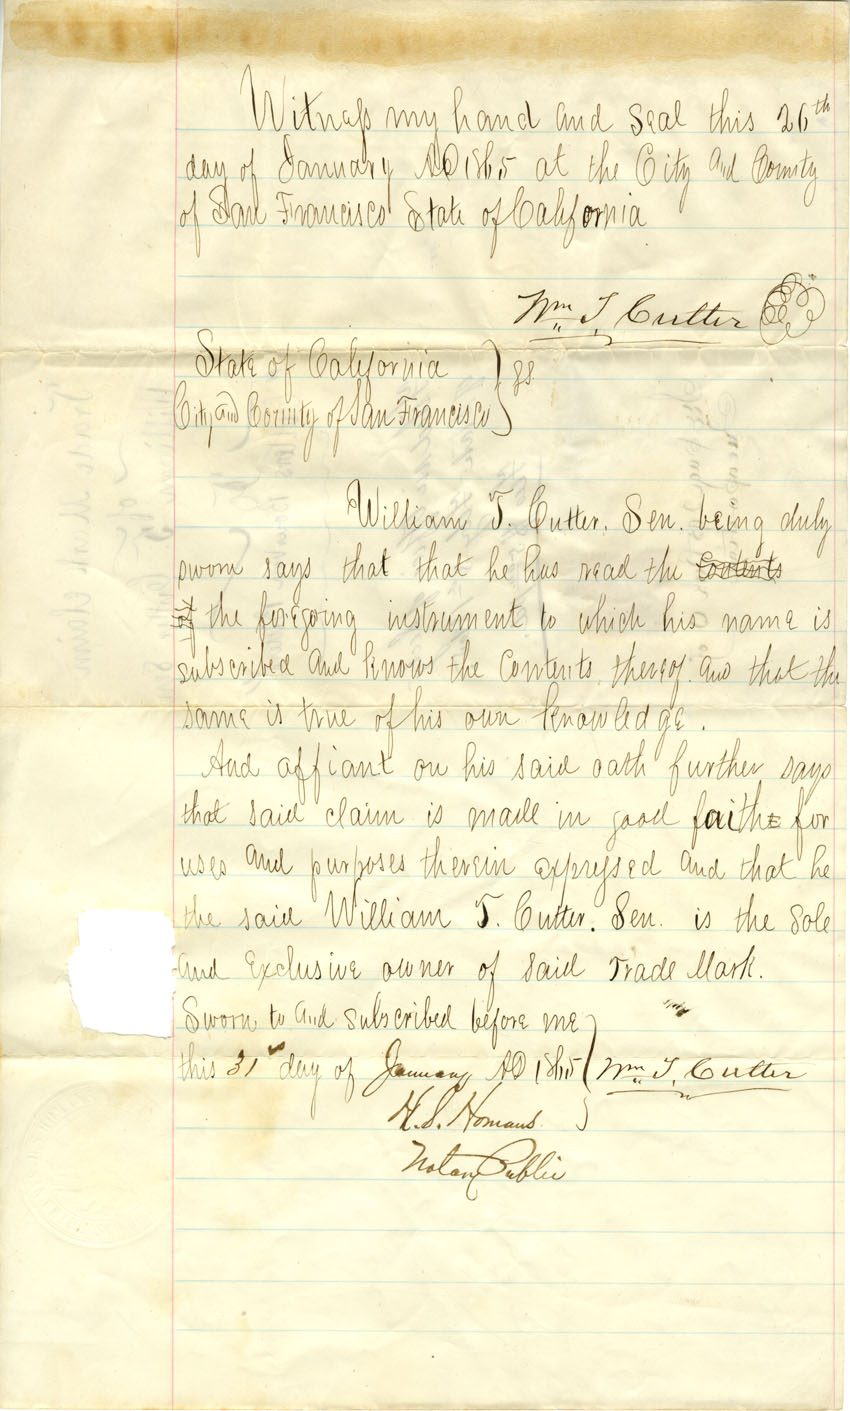 Witness my hand and seal this 26th
day of January AD 1865 at the City and County
of San Francisco State of California
Wm T. Cutter
State of California } ss.
City and County of San Francisco
William T. Cutter. Sen. being duly
sworn says that that he has read the contents
of the foregoing instrument to which his name is
subscribed and knows the contents thereof. and that the
same is true of his own knowledge.
And affiant on his said oath further says
that said claim is made in good faith for
uses and purposes therein expressed and that he
the said William T. Cutter. Sen. is the sole
and exclusive owner of said Trade Mark.
Sworn to and subscribed before me
this 31st day of January AD 1865 } Wm T. Cutter
H. S. Homans.
Notary Public